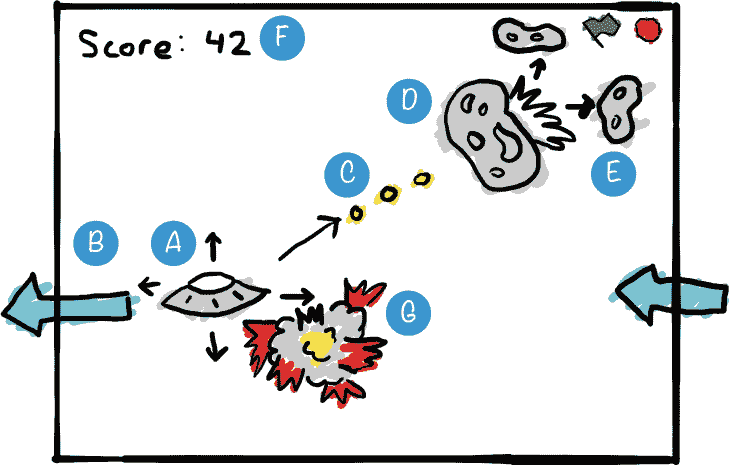 Score: 42 F
D
C
E
B A
G